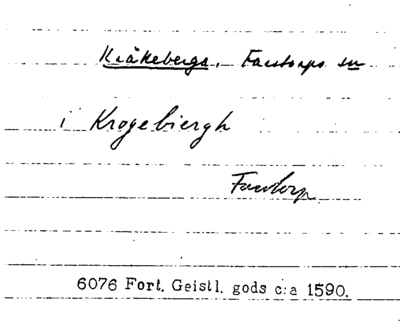 Kråkeberga, Fastorps sn
i Krogebiergh
Fastorp
6076 Fort. Geistl. gods c:a 1590.